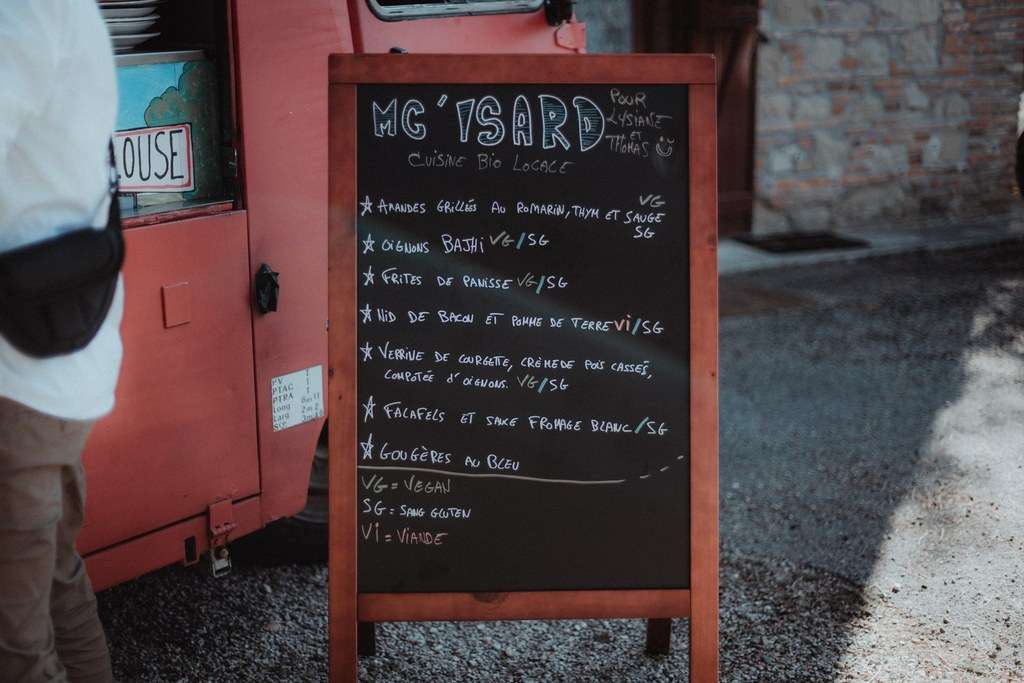 MC'ISARD
POUR
LYSIANE
ET
THOMAS
CUISINE BIO LOCALE
AMANDES GRILLÉS AU ROMARIN, THYM ET SAUGE VG
SG
OIGNONS BAJHI VG/SG
FRITES DE PANISSE VG/SG
NID DE BACON ET POMME DE TERRE Vi/SG
VERRINE DE COURGETTE, CRÈME DE POIS CASSÉS,
COMPOTÉE D'OIGNONS. VG/SG
FALAFELS ET SAUCE FROMAGE BLANC/SG
GOUGÈRES AU BLEU
VG = VEGAN
SG = SANS GLUTEN
Vi = VIANDE
OUSE
PV
PTAC
PTRA
Long
Larg